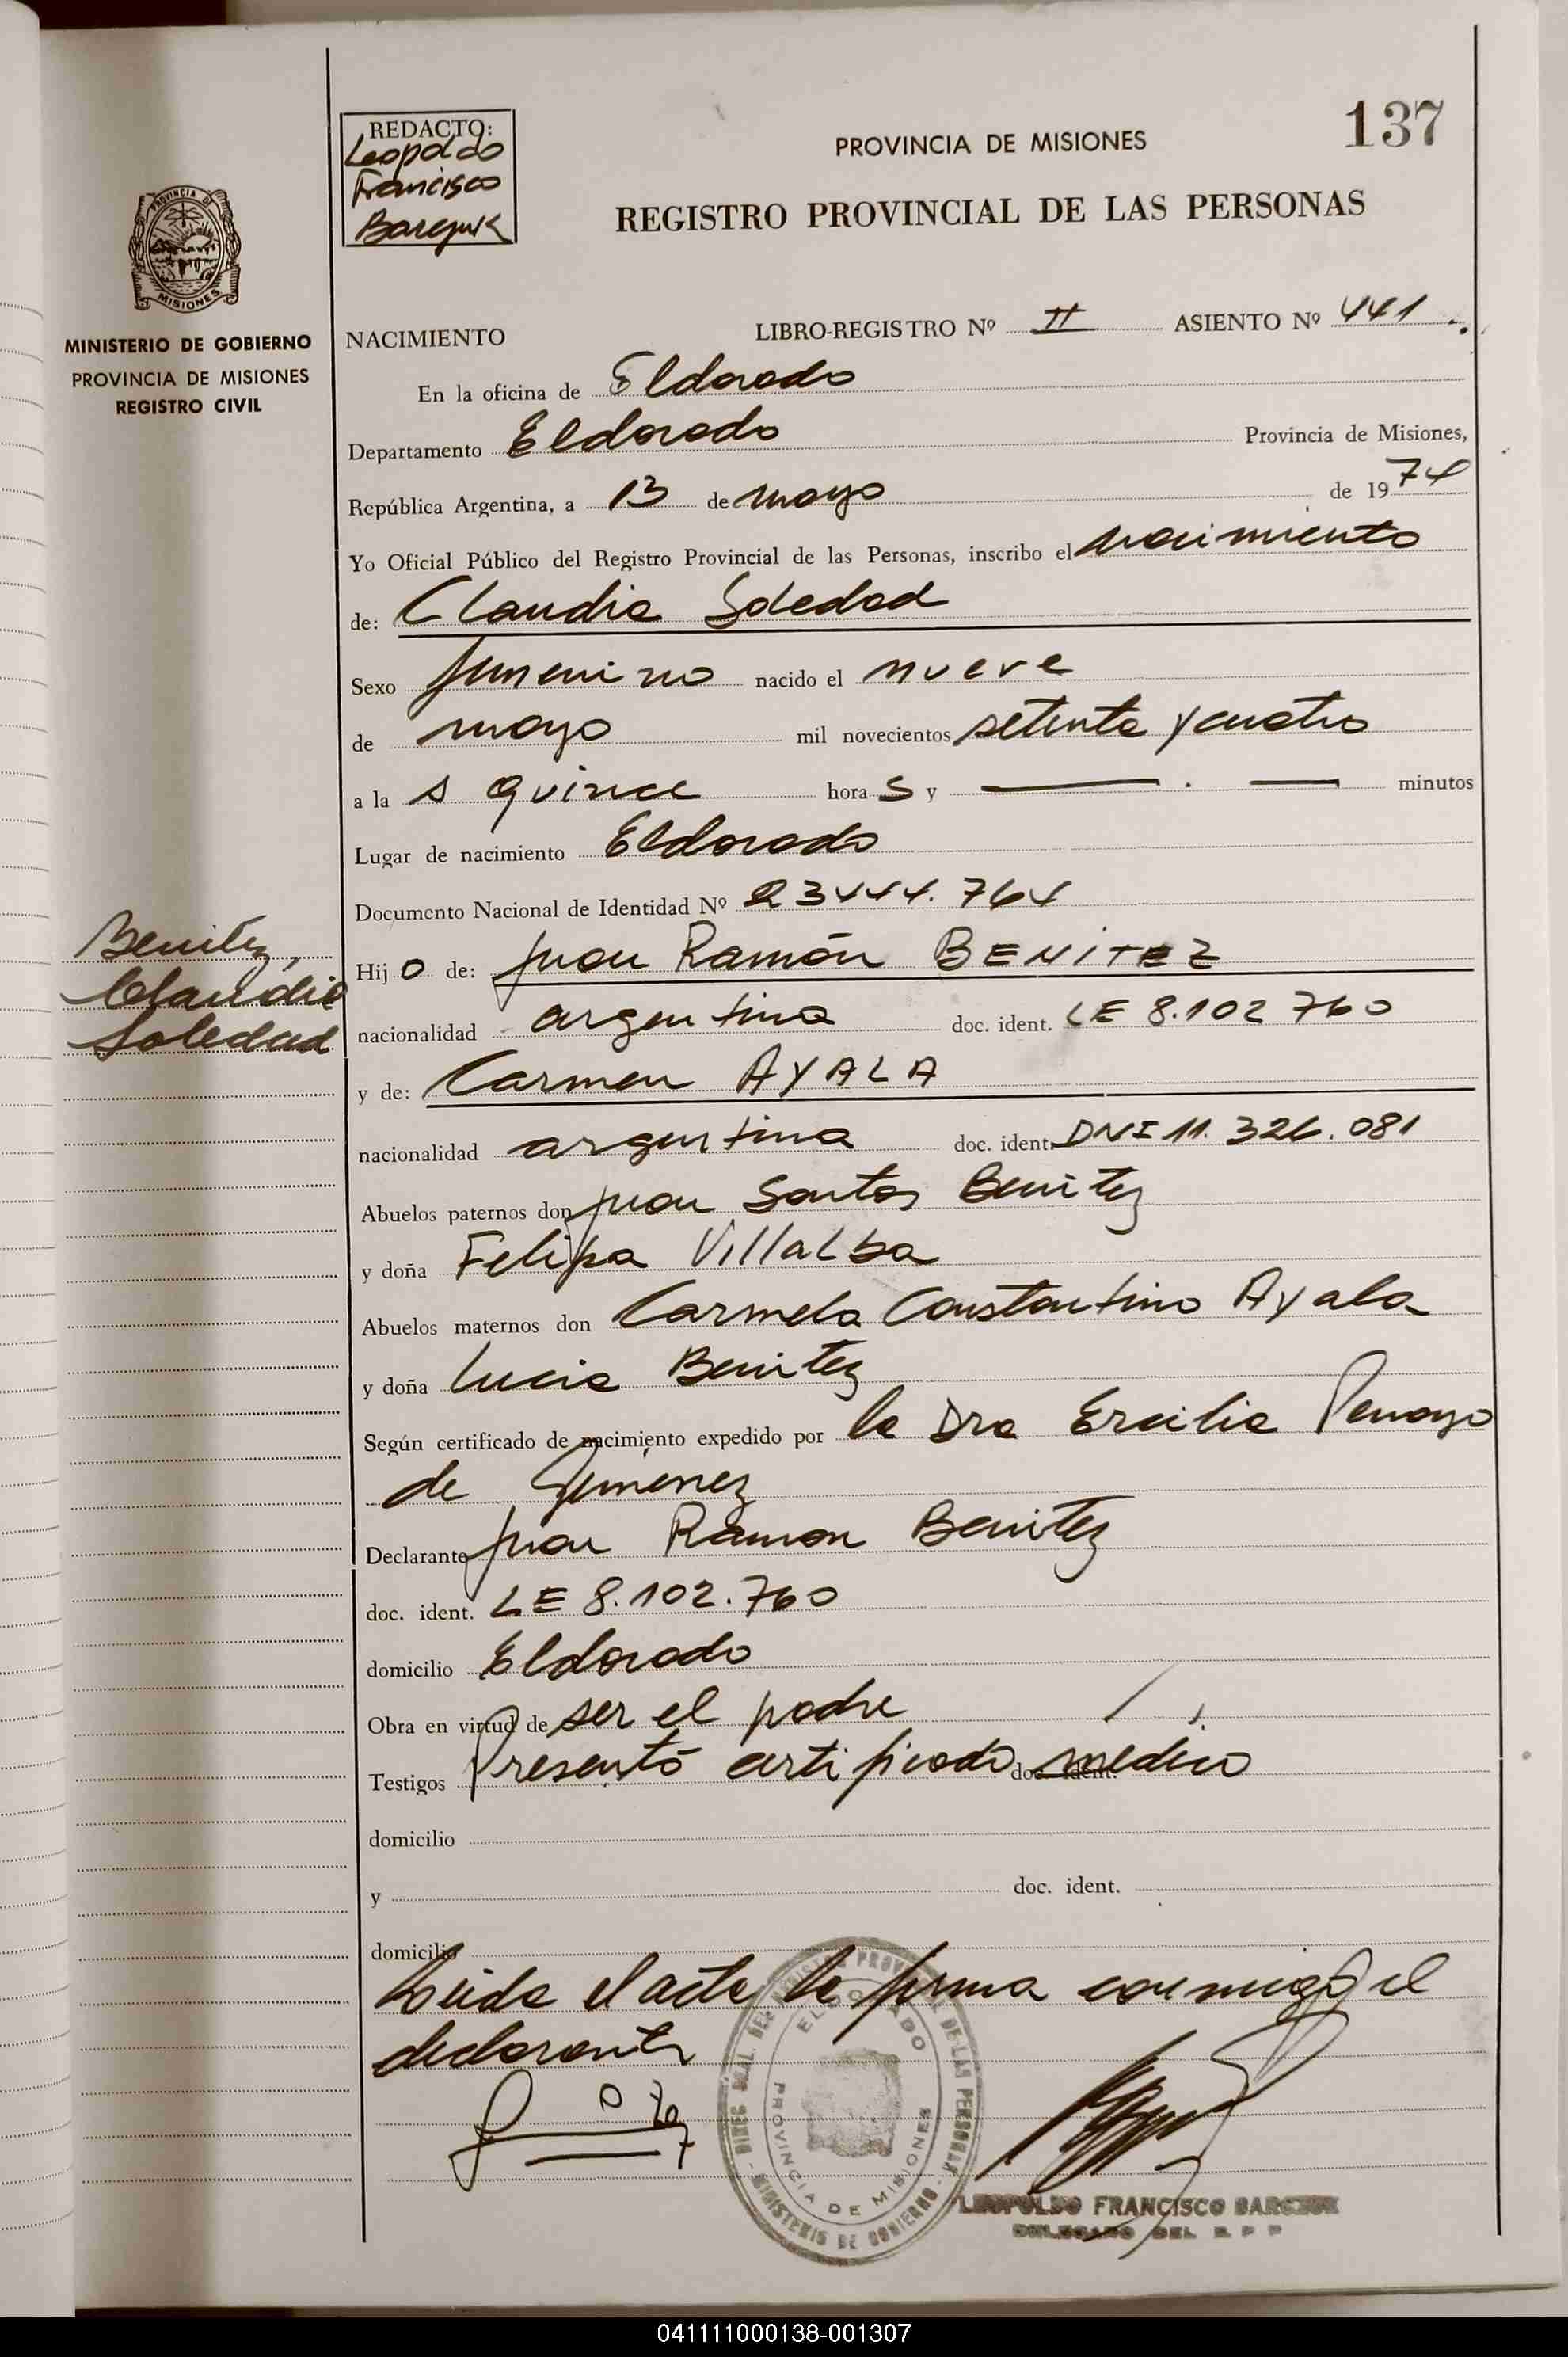 137
REDACTO:
Leopoldo
Francisco
PROVINCIA DE MISIONES
REGISTRO PROVINCIAL DE LAS PERSONAS
PROVINCIA DE
MISIONES
MINISTERIO DE GOBIERNO
PROVINCIA DE MISIONES
REGISTRO CIVIL
NACIMIENTO LIBRO-REGISTRO Nº II ASIENTO Nº 441
En la oficina de Eldorado
Departamento Eldorado Provincia de Misiones,
República Argentina, a 13 de mayo de 1974
Yo Oficial Público del Registro Provincial de las Personas, inscribo el nacimiento
de: Claudia Soledad
Sexo femenino nacido el nueve
de mayo mil novecientos setenta y cuatro
a la s quince hora s y — . — minutos
Lugar de nacimiento Eldorado
Documento Nacional de Identidad Nº 23444.764
Benitez,
Claudia
Soledad
Hij o de: Juan Ramón BENITEZ
nacionalidad argentina doc. ident. LE 8.102 760
y de: Carmen AYALA
nacionalidad argentina doc. ident. DNI 11.326.081
Abuelos paternos don Juan Santos Benitez
y doña Felipa Villalba
Abuelos maternos don Carmelo Constantino Ayala
y doña Lucia Benitez
Según certificado de nacimiento expedido por la Dra Ercilia Penayo
de Gimenez
Declarante Juan Ramon Benitez
doc. ident. LE 8.102.760
domicilio Eldorado
Obra en virtud de ser el padre
Testigos Presentó certificado doc. ident. médico
domicilio
y doc. ident.
domicilio
Leida el acta la firma conmigo el
declarante
ELDORADO
PROVINCIA DE MISIONES
MINISTERIO DE GOBIERNO
LEOPOLDO FRANCISCO
DELEGADO DEL R P P
041111000138-001307